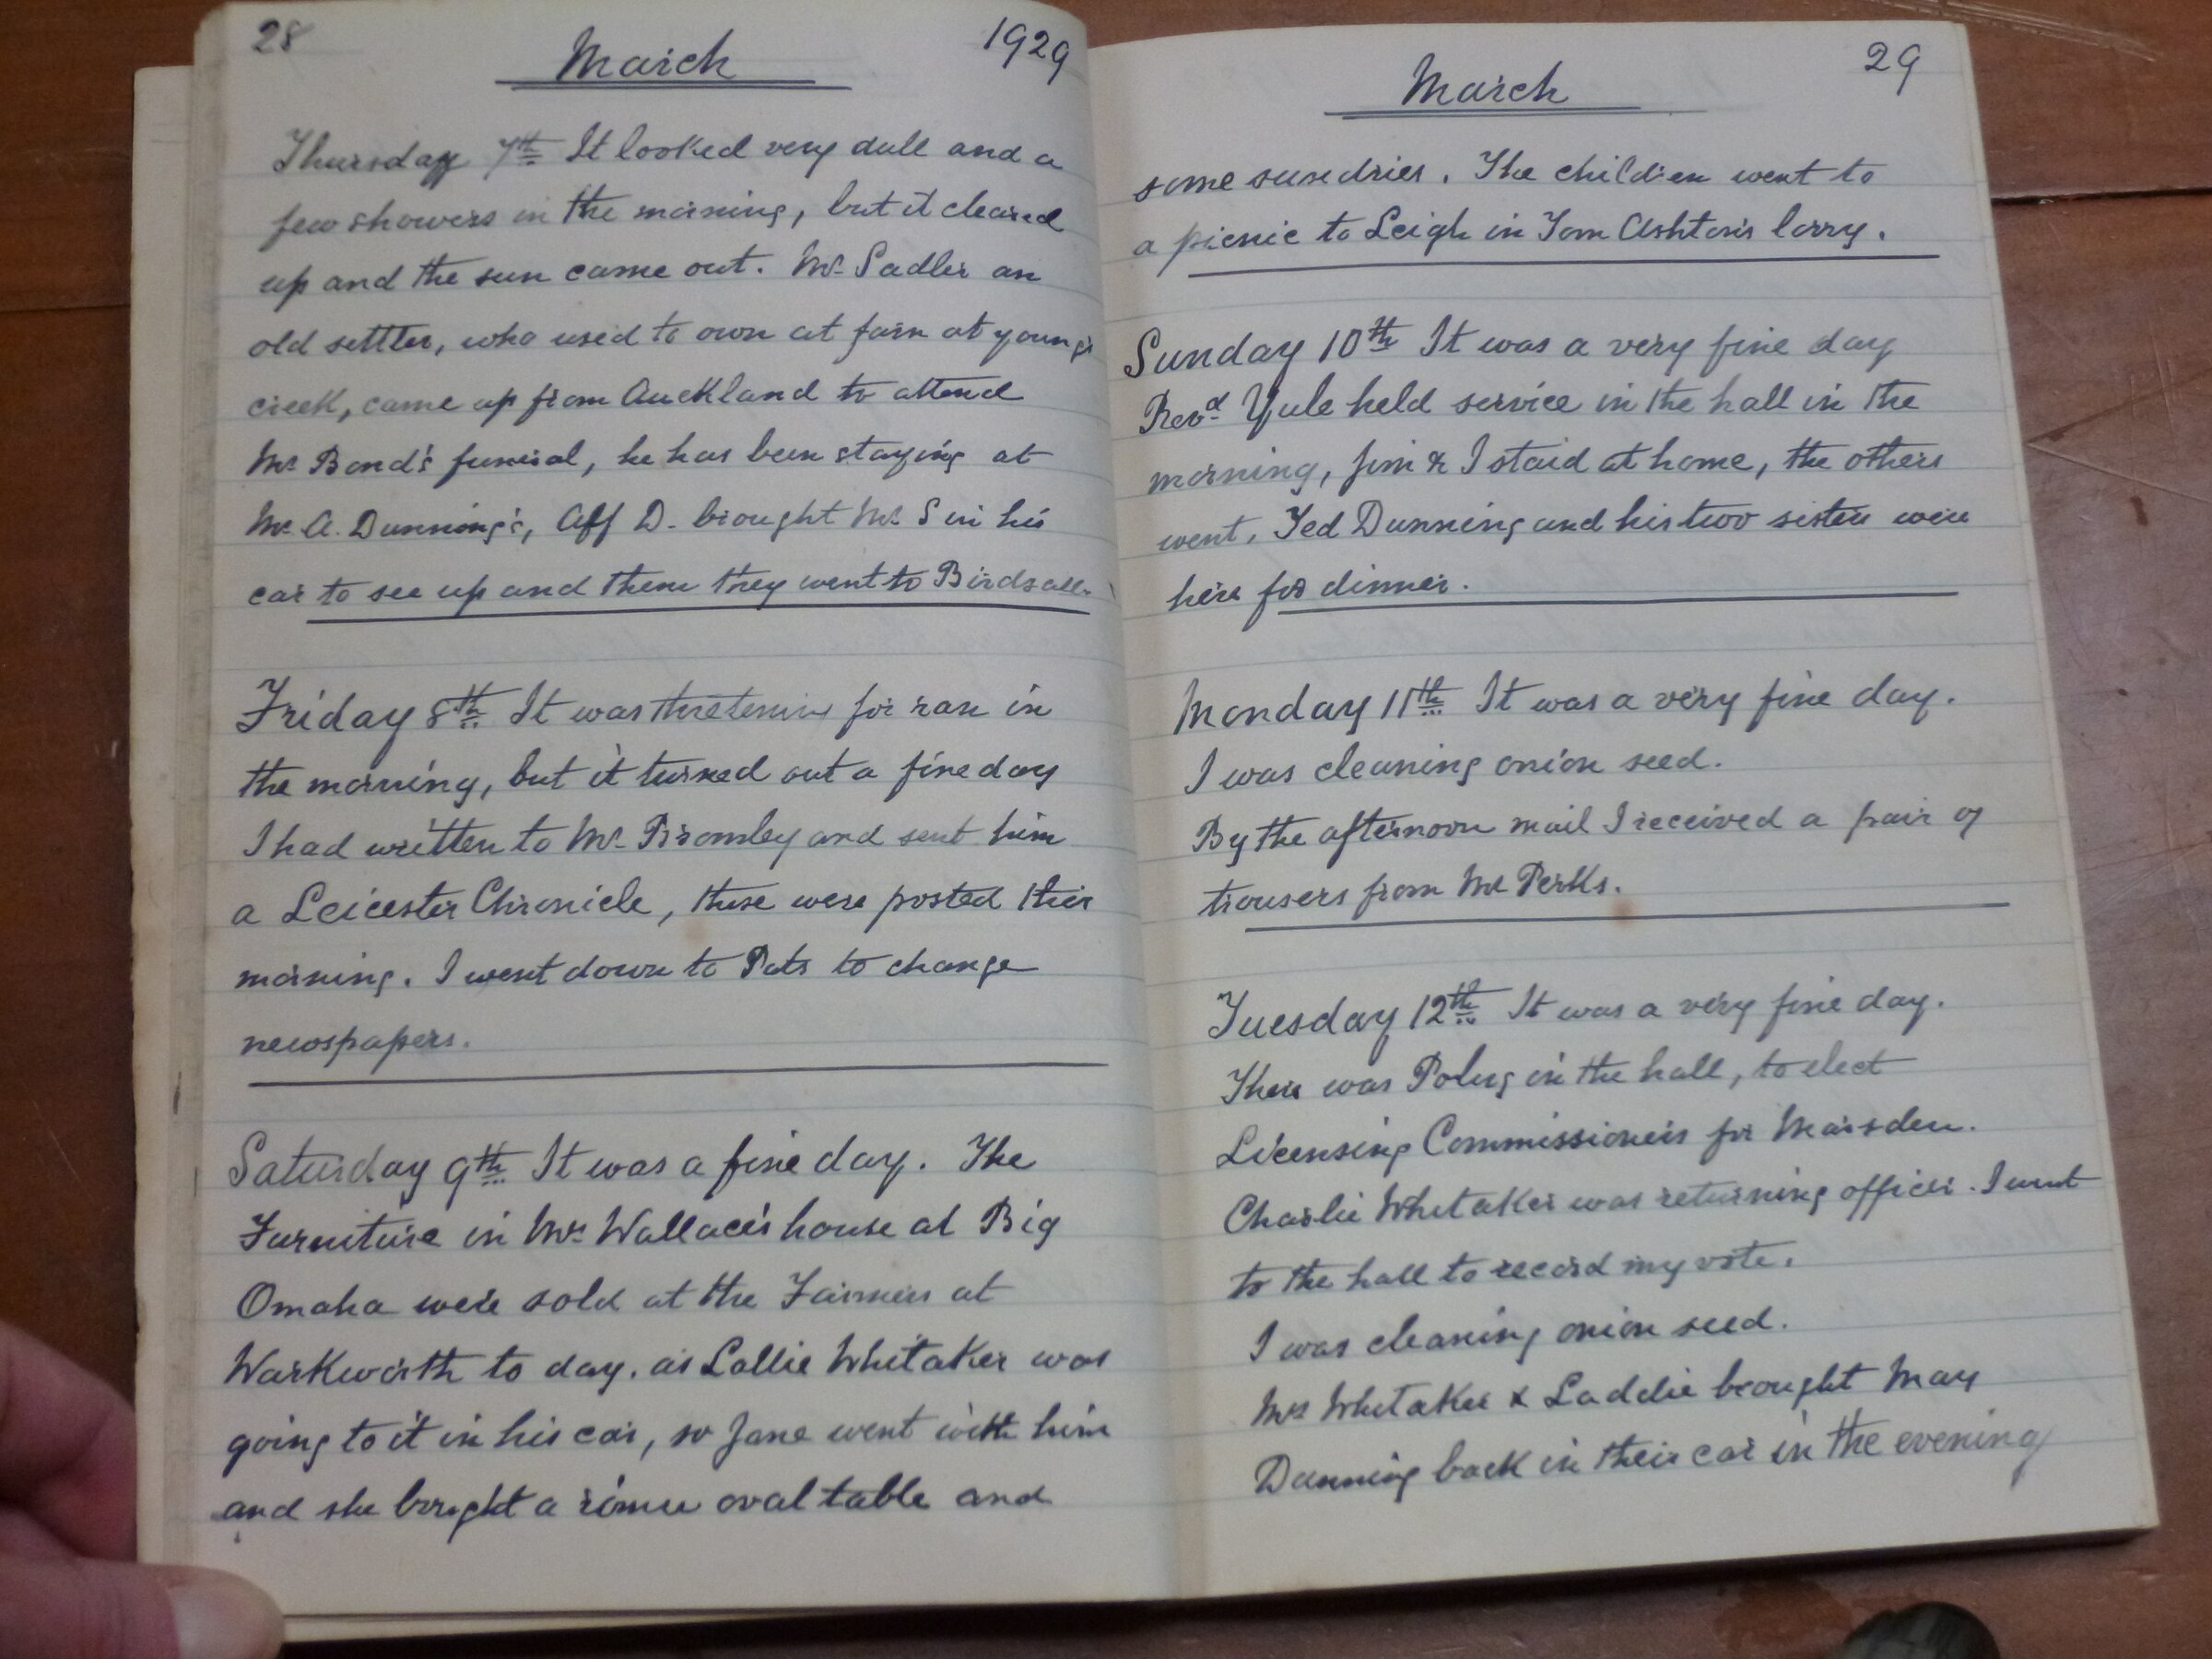 28
March
1929
Thursday 7th It looked very dull and a
few showers in the morning, but it cleared
up and the sun came out. Mr Sadler an
old settler, who used to own at farn at young's
creek, came up from Auckland to attend
Mr Bond's funeral, he has been staying at
Mr A. Dunning's, Alf D. brought Mr S in his
car to see up and them they went to Birdsall.
Friday 8th It was thretening for ran in
the morning, but it turned out a fine day
I had written to Mr Bromley and sent him
a Leicester Chronicle, these were posted this
morning. I went down to Pats to change
newspapers.
Saturday 9th It was a fine day. The
Furniture in Mrs Wallace's house at Big
Omaha were sold at the Farmers at
Warkworth to day. as Lallie Whitaker was
going to it in his car, so Jane went with him
and she bought a rimu oval table and
March
29
some sundries. The children went to
a picnic to Leigh in Tom Ashton's lorry.
Sunday 10th It was a very fine day
Revd Yule held service in the hall in the
morning, Jim & I staid at home, the others
went. Ted Dunning and his two sisters were
here for dinner.
Monday 11th It was a very fine day.
I was cleaning onion seed.
By the afternoon mail I received a pair of
trousers from Mr Perks.
Tuesday 12th It was a very fine day.
There was Poling in the hall, to elect
Licensing Commissioners for Marsden.
Charlie Whitaker was returning officer. I went
to the hall to record my vote.
I was cleaning onion seed.
Mrs Whitaker & Laddie brought May
Dunning back in their car in the evening